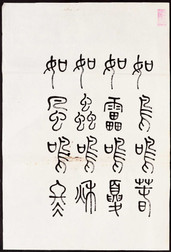 如鳥鳴春
如雷鳴夏
如蟲鳴秋
如風鳴冬